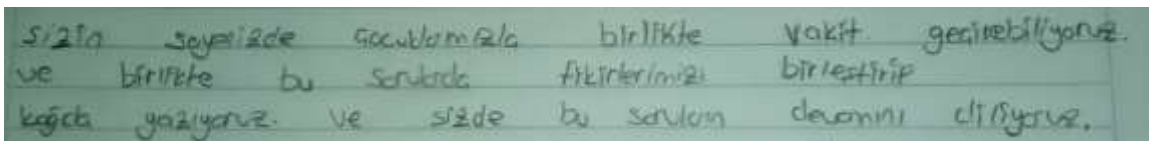 sizin sayenizde çocuklarımızla birlikte vakit geçirebiliyoruz.
ve birlikte bu sorularda fikirlerimizi birleştirip
kağıda yazıyoruz. ve sizde bu soruların devamını diliyoruz.